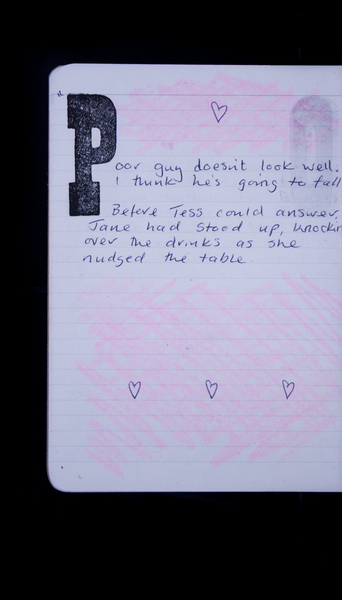 "Poor guy doesn't look well.
I think he's going to fall
Before Tess could answer,
Jane had stood up,
over the drinks as she
nudged the table.